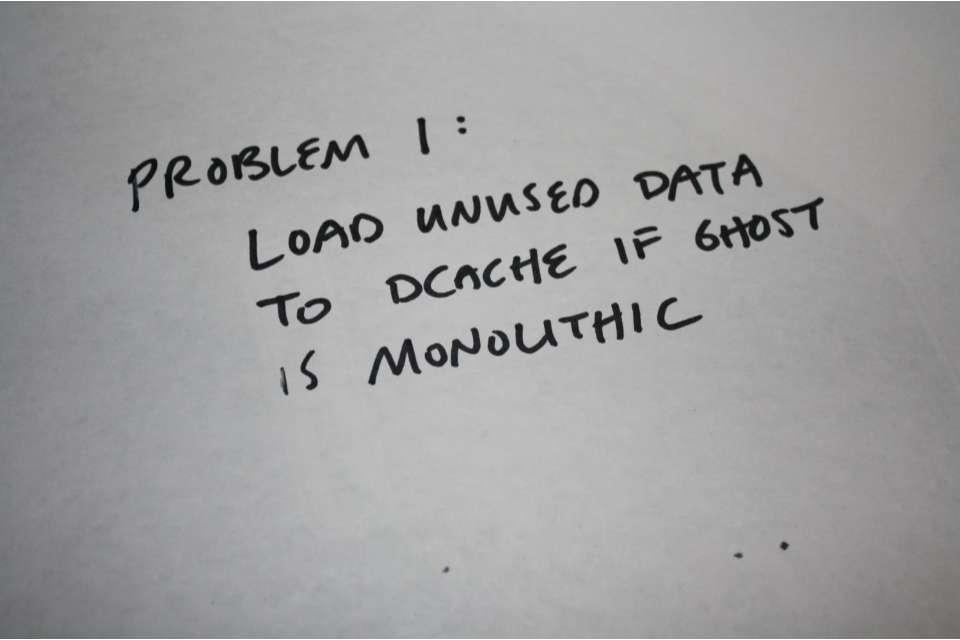 PROBLEM 1:
LOAD UNUSED DATA
TO DCACHE IF GHOST
IS MONOLITHIC